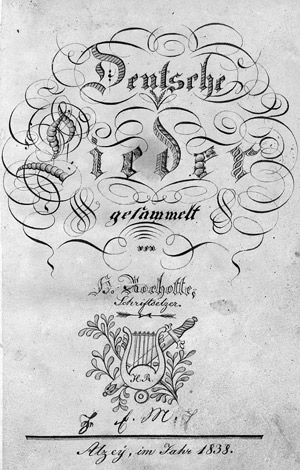 Deutsche
Lieder
gesammelt
von
H. Rochotte,
Schriftsetzer.
H.R.
Alzeÿ, im Jahr 1838.